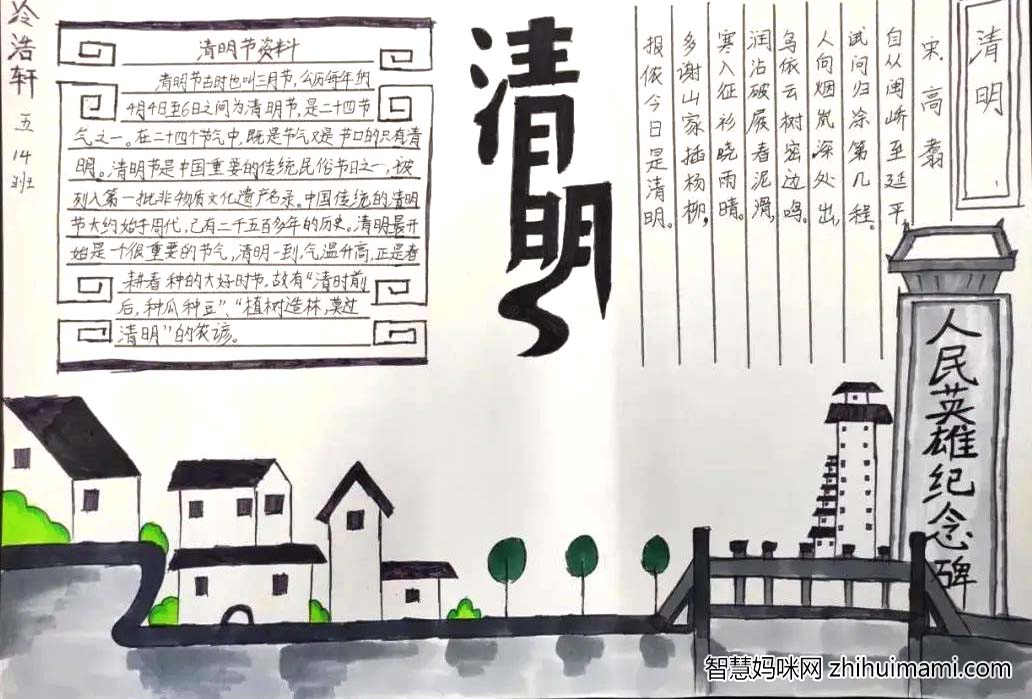 冷浩轩
五
14
班
清明节资料
清明节古时也叫三月节，公历每年的
4月4日至6日之间为清明节，是二十四节
气之一。在二十四个节气中，既是节气又是节日的只有清
明。清明节是中国重要的传统民俗节日之一，被
列入第一批非物质文化遗产名录。中国传统的清明
节大约始于周代，已有二千五百多年的历史。清明最开
始是一个很重要的节气，清明一到，气温升高，正是春
耕春种的大好时节，故有“清明前
后，种瓜种豆”、“植树造林，莫过
清明”的农谚。
清明
清明
宋 高翥
自从闽峤至延平，
试问归涂第几程。
人向烟岚深处出，
鸟依云树密边鸣。
润沾破屐春泥滑，
寒入征衫晓雨晴。
多谢山家插杨柳，
报依今日是清明。
人民英雄纪念碑
智慧妈咪网 zhihuimami.com